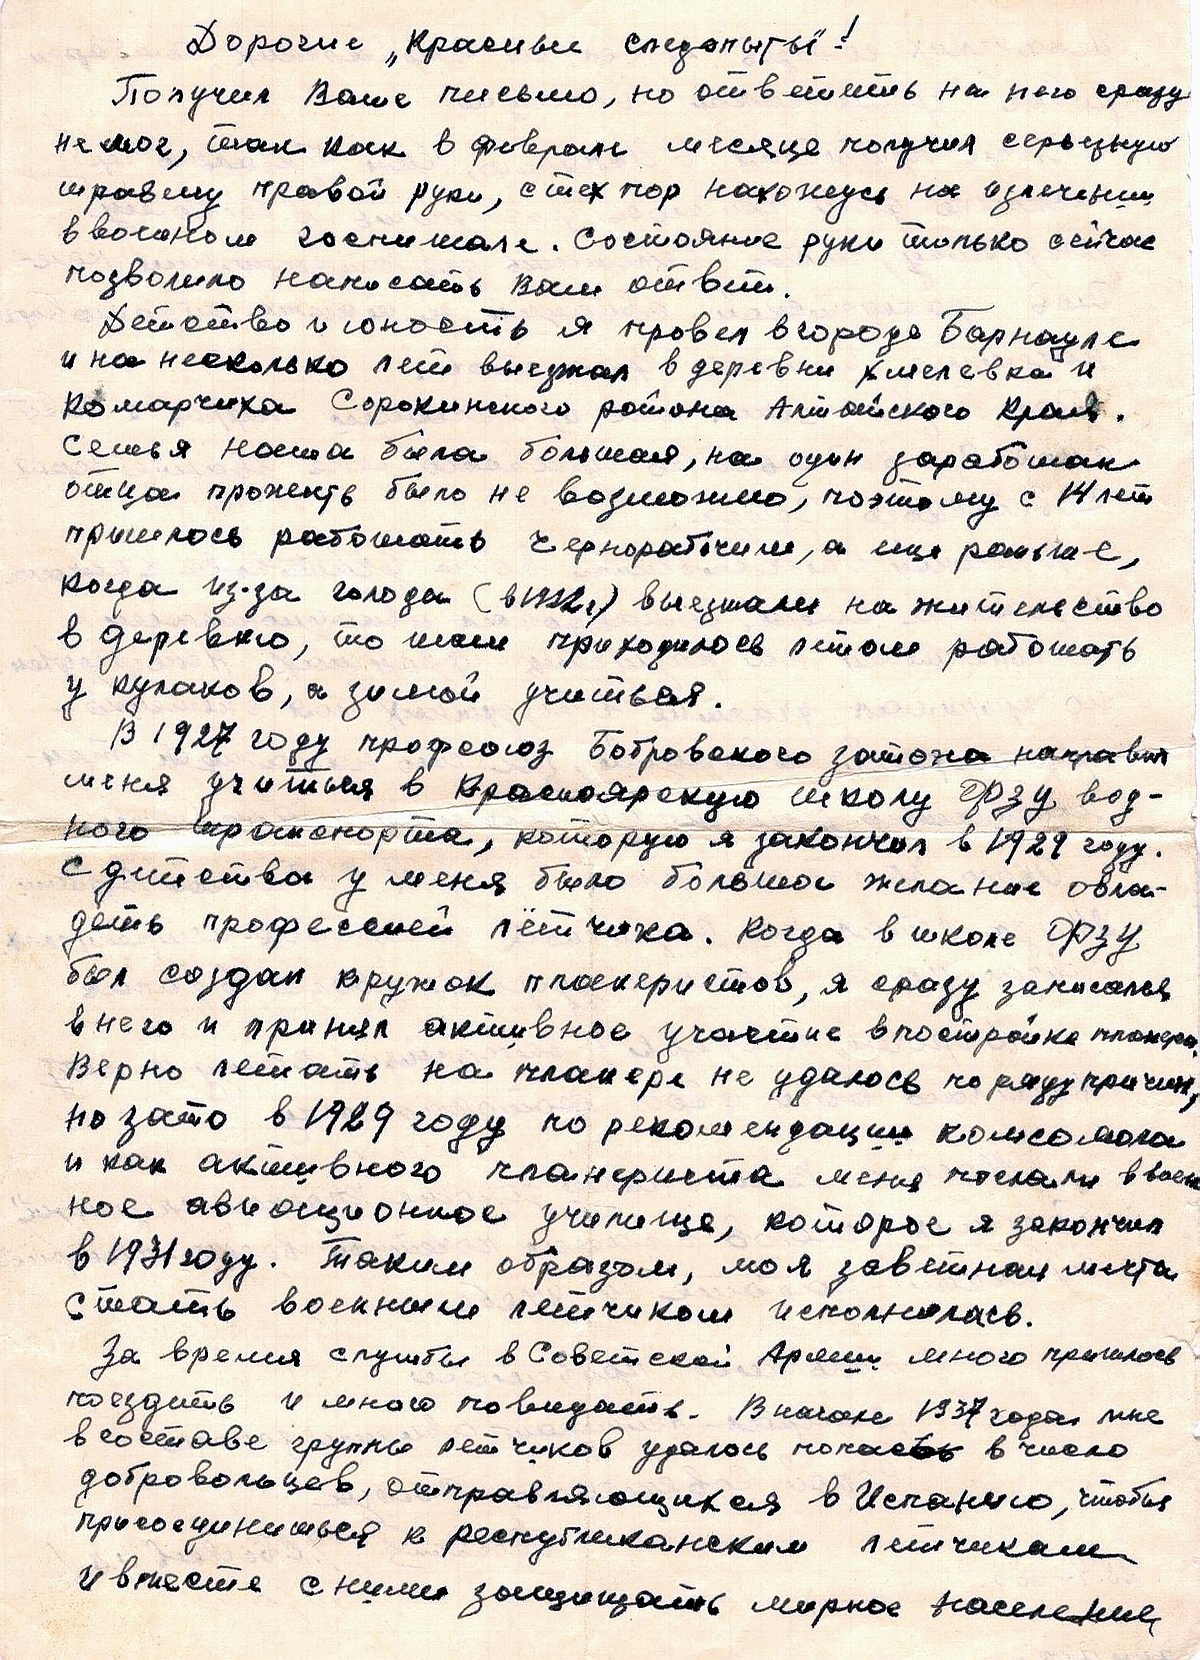 Дорогие „Красные следопыты"!
Получил Ваше письмо, но ответить на него сразу
не мог, так как в феврале месяце получил серьезную
травму правой руки, с тех пор нахожусь на излечении
в военном госпитале. Состояние руки только сейчас
позволило написать Вам ответ.
Детство и юность я провел в городе Барнауле
и на несколько лет выезжал в деревни Хмелевка и
Комарчиха Сорокинского района Алтайского Края.
Семья наша была большая, на один заработок
отца прожить было не возможно, поэтому с 14 лет
пришлось работать чернорабочим, а еще раньше,
когда из-за голода (в 1922 г.) выезжали на жительство
в деревню, то там приходилось летом работать
у кулаков, а зимой учиться.
В 1927 году профсоюз Бобровского затона направил
меня учиться в Красноярскую школу ФЗУ вод-
ного транспорта, которую я закончил в 1929 году.
С детства у меня было большое желание овла-
деть профессией лётчика. Когда в школе ФЗУ
был создан кружок планеристов, я сразу записался
в него и принял активное участие в постройке планера.
Верно летать на планере не удалось по ряду причин,
но зато в 1929 году по рекомендации комсомола
и как активного планериста меня послали в воен
ное авиационное училище, которое я закончил
в 1931 году. Таким образом, моя заветная мечта
стать военным летчиком исполнилась.
За время службы в Советской Армии много пришлось
поездить и много повидать. В начале 1937 года мне
в составе группы летчиков удалось попасть в число
добровольцев, отправляющихся в Испанию, чтобы
присоединиться к республиканским летчикам
и вместе с ними защищать мирное население,